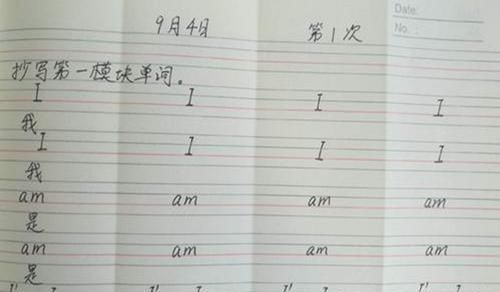 Date:
9月4日 第1次
No.:
抄写第一模块单词。
I I I I
我
I I I I
我
am am am am
是
am am am am
是